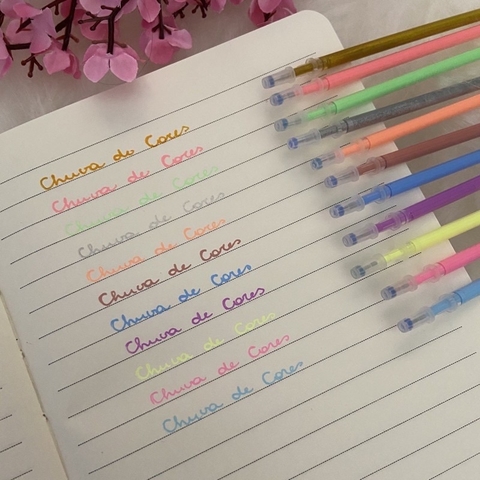 Chuva de Cores
Chuva de Cores
Chuva de Cores
Chuva de Cores
Chuva de Cores
Chuva de Cores
Chuva de Cores
Chuva de Cores
Chuva de Cores
Chuva de Cores
Chuva de Cores